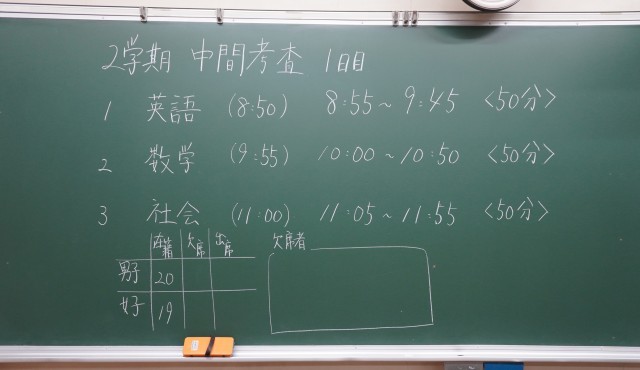 2学期 中間考査 1日目
1 英語 (8:50) 8:55～9:45 <50分>
2 数学 (9:55) 10:00～10:50 <50分>
3 社会 (11:00) 11:05～11:55 <50分>
在籍 欠席 出席
男子 20
女子 19
欠席者